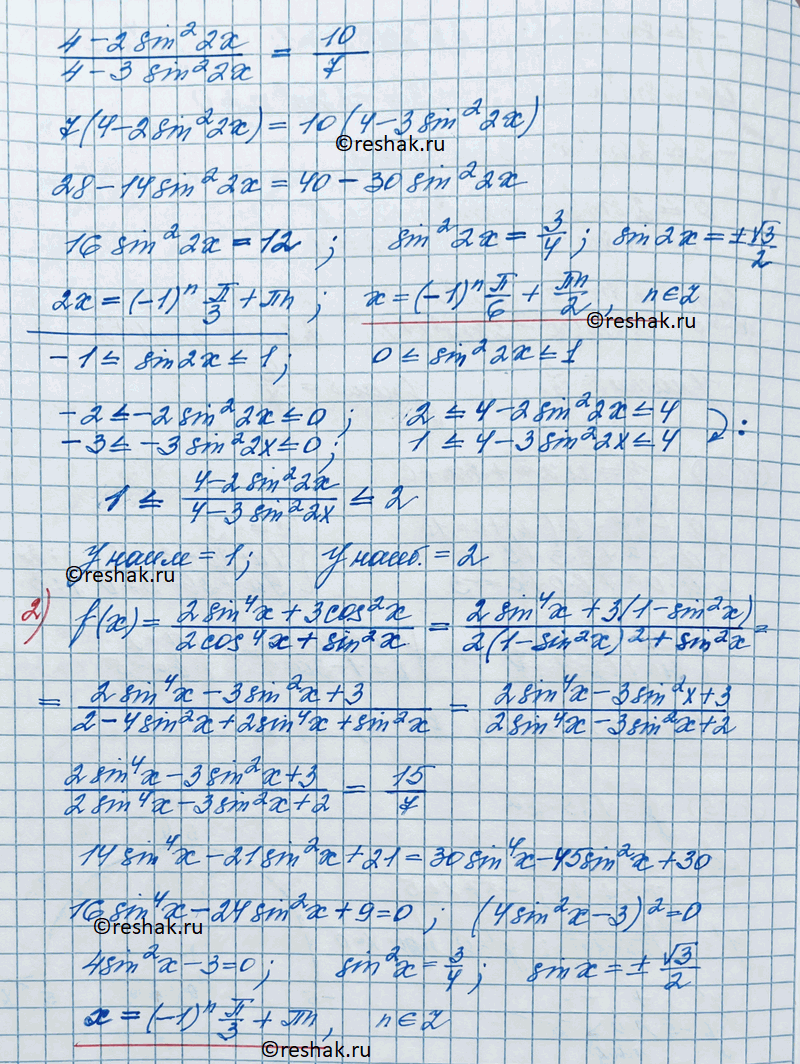 (4 – 2 sin² 2x)/(4 – 3 sin² 2x) = 10/7
7(4 – 2sin² 2x) = 10(4 – 3 sin² 2x)
©reshak.ru
28 – 14 sin² 2x = 40 – 30 sin² 2x
16 sin² 2x = 12 ; sin² 2x = 3/4 ; sin 2x = ±√3/2
2x = (-1)ⁿ π/3 + πn ; x = (-1)ⁿ π/6 + πn/2 , n ∈ Z
©reshak.ru
-1 ≤ sin 2x ≤ 1 ; 0 ≤ sin² 2x ≤ 1
-2 ≤ -2 sin² 2x ≤ 0 ; 2 ≤ 4 – 2sin² 2x ≤ 4
-3 ≤ -3 sin² 2x ≤ 0 ; 1 ≤ 4 – 3 sin² 2x ≤ 4 :
1 ≤ (4 – 2 sin² 2x)/(4 – 3 sin² 2x) ≤ 2
У наим = 1 ; У наиб. = 2
©reshak.ru
2) f(x) = (2 sin⁴x + 3cos²x)/(2cos⁴x + sin²x) = (2 sin⁴x + 3(1 – sin²x))/(2(1 – sin²x)² + sin²x) =
= (2 sin⁴x – 3 sin²x + 3)/(2 – 4sin²x + 2sin⁴x + sin²x) = (2sin⁴x – 3 sin²x + 3)/(2sin⁴x – 3sin²x + 2)
(2 sin⁴x – 3 sin²x + 3)/(2 sin⁴x – 3 sin²x + 2) = 15/7
14 sin⁴x – 21 sin²x + 21 = 30 sin⁴x – 45 sin²x + 30
16 sin⁴x – 24 sin²x + 9 = 0 ; (4 sin²x – 3)² = 0
©reshak.ru
4sin²x – 3 = 0 ; sin²x = 3/4 ; sin x = ± √3/2
x = (-1)ⁿ π/3 + πn , n ∈ Z
©reshak.ru